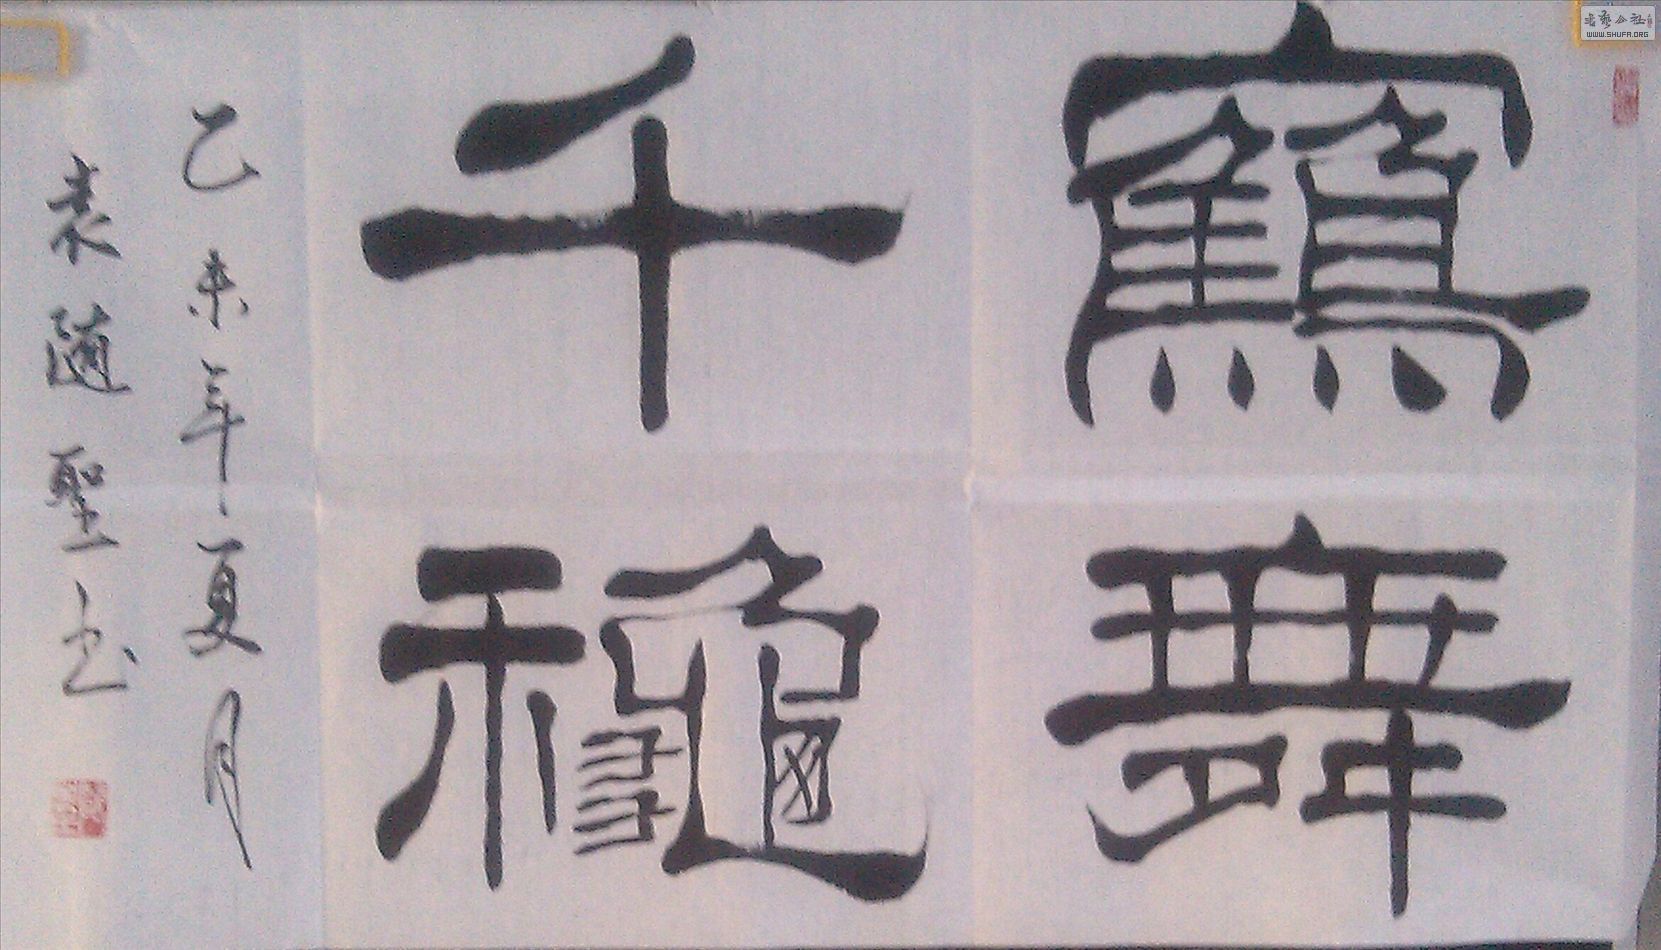 鶴舞
千龝
乙未年夏月
袁随聖书
书艺公社
WWW.SHUFA.ORG